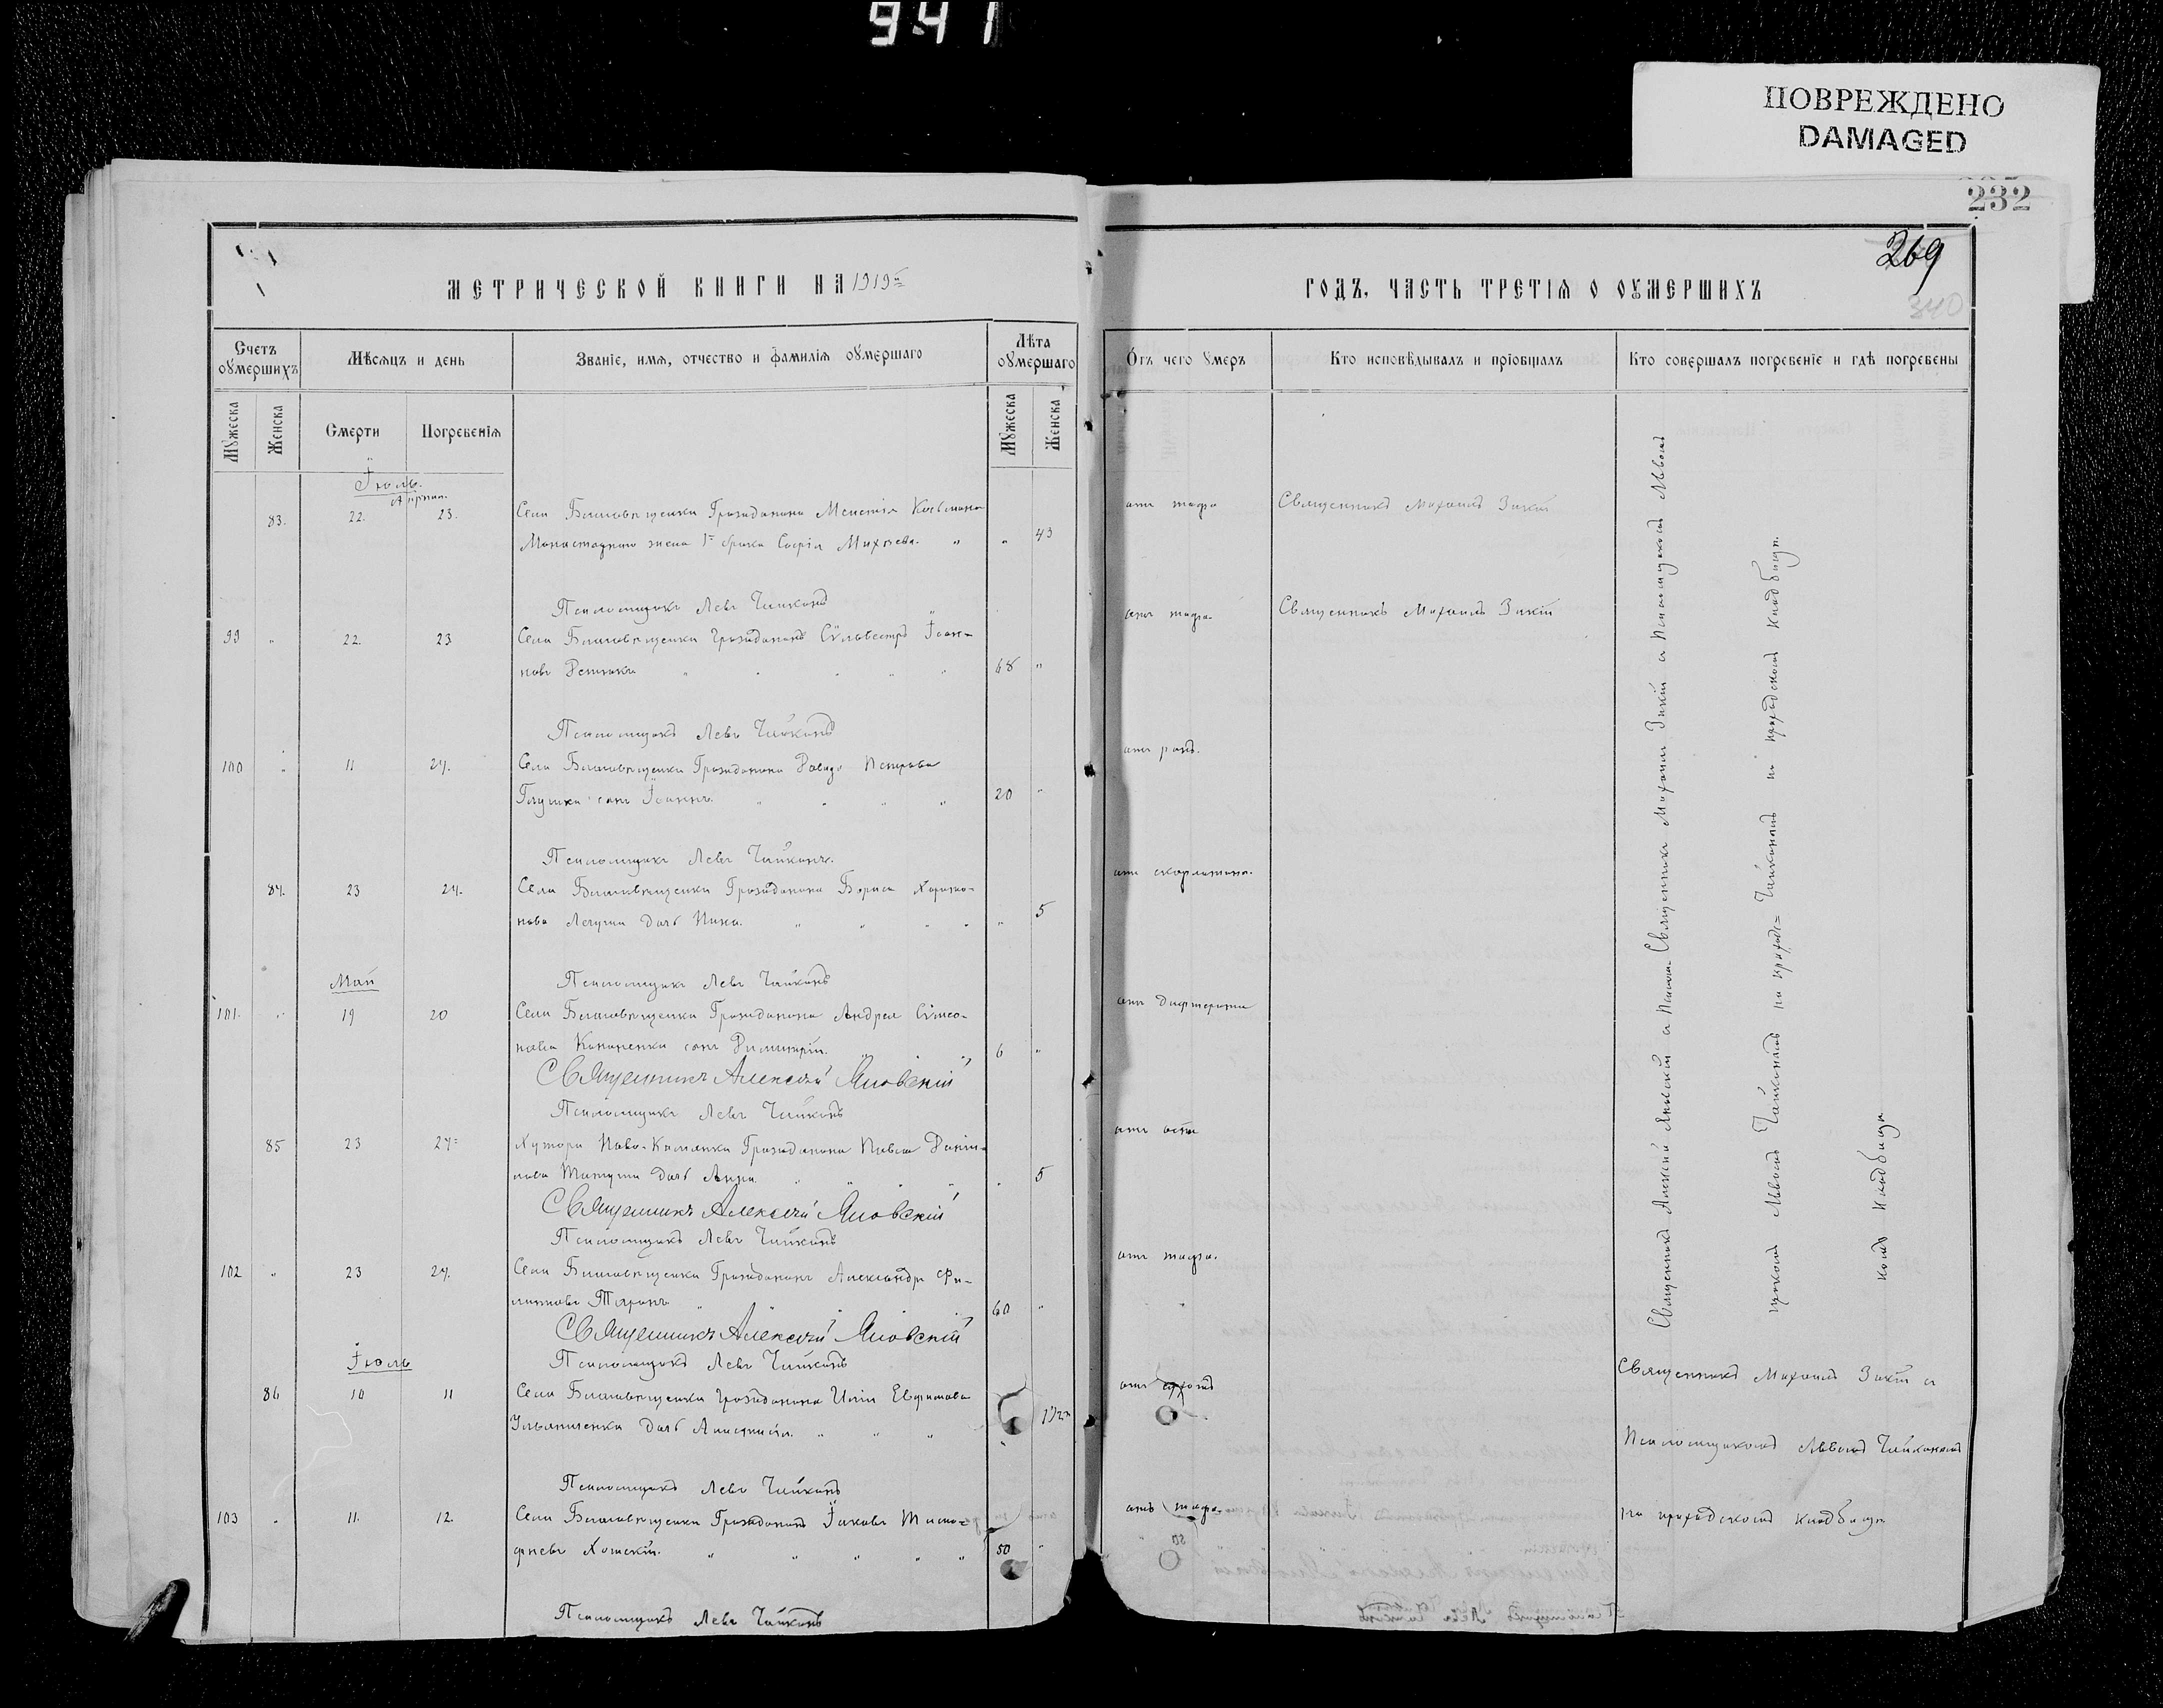 941
ПОВРЕЖДЕНО
DAMAGED
232
269
340
МЕТРИЧЕСКОЙ КНИГИ НА 1919й
ГОДЪ, ЧАСТЬ ТРЕТІЯ О ОУМЕРШИХЪ
Счетъ оумершихъ
Мѣсяцъ и день
Званіе, имя, отчество и фамилія оумершаго
Лѣта оумершаго
Отъ чего умеръ
Кто исповѣдывалъ и пріобщалъ
Кто совершалъ погребеніе и гдѣ погребены
Мужеска
Женска
Смерти
Погребенія
Мужеска
Женска
Іюль.
Апрѣль.
83. 22. 23. Села Благовѣщенки Гражданина Козьмина 43
жена 1го брака Софія Михѣева.
отъ тифа
Священникъ Михаилъ Зикій
Псаломщикъ Левъ Чайкинъ
99 " 22. 23 Села Благовѣщенки Гражданинъ Сильвестръ Іоан-
новъ 68 "
отъ тифа.
Священникъ Михаилъ Зикій
Псаломщикъ Левъ Чайкинъ
100 " 11 24. Села Благовѣщенки Гражданина Давида Петрова
Глушка сынъ Іоаннъ. 20 "
отъ ранъ.
Псаломщикъ Левъ Чайкинъ.
84. 23 24. Села Благовѣщенки Гражданина Бориса Харито-
нова дочь Нина. " 5
отъ скарлатины.
Май
Псаломщикъ Левъ Чайкинъ
101. " 19 20 Села Благовѣщенки Гражданина Андрея Симео-
нова Кононенка сынъ Димитрій. 6 "
отъ дифтерита
Священникъ Алексѣй Яновскій
Псаломщикъ Левъ Чайкинъ
85 23 24 Хутора Ново- Гражданина Павла Даніи-
лова дочь Анна. " 5
отъ оспы
Священникъ Алексѣй Яновскій
Псаломщикъ Левъ Чайкинъ
102 " 23 24. Села Благовѣщенки Гражданинъ Александръ Фи-
липповъ Таранъ 60 "
отъ тифа.
Священникъ Алексѣй Яновскій
Іюль
Псаломщикъ Левъ Чайкинъ
86 10 11 Села Благовѣщенки Гражданина Иліи Евфимова
Ульяниченка дочь Анастасія. 1/2
отъ
Псаломщикъ Левъ Чайкинъ
103 " 11. 12. Села Благовѣщенки Гражданинъ Іаковъ Тимо-
феевъ 50 "
отъ тифа.
Псаломщикъ Левъ Чайкинъ
Священникъ Алексѣй Яновскій и Псалом-
щикомъ Львомъ Чайкинымъ на приход-
комъ кладбищѣ.
Священникъ Михаилъ Зикій и Псаломщикомъ Львомъ
Чайкинымъ на приходскомъ кладбищѣ.
Священникъ Михаилъ Зикій и
Псаломщикомъ Львомъ Чайкинымъ
на приходскомъ кладбищѣ